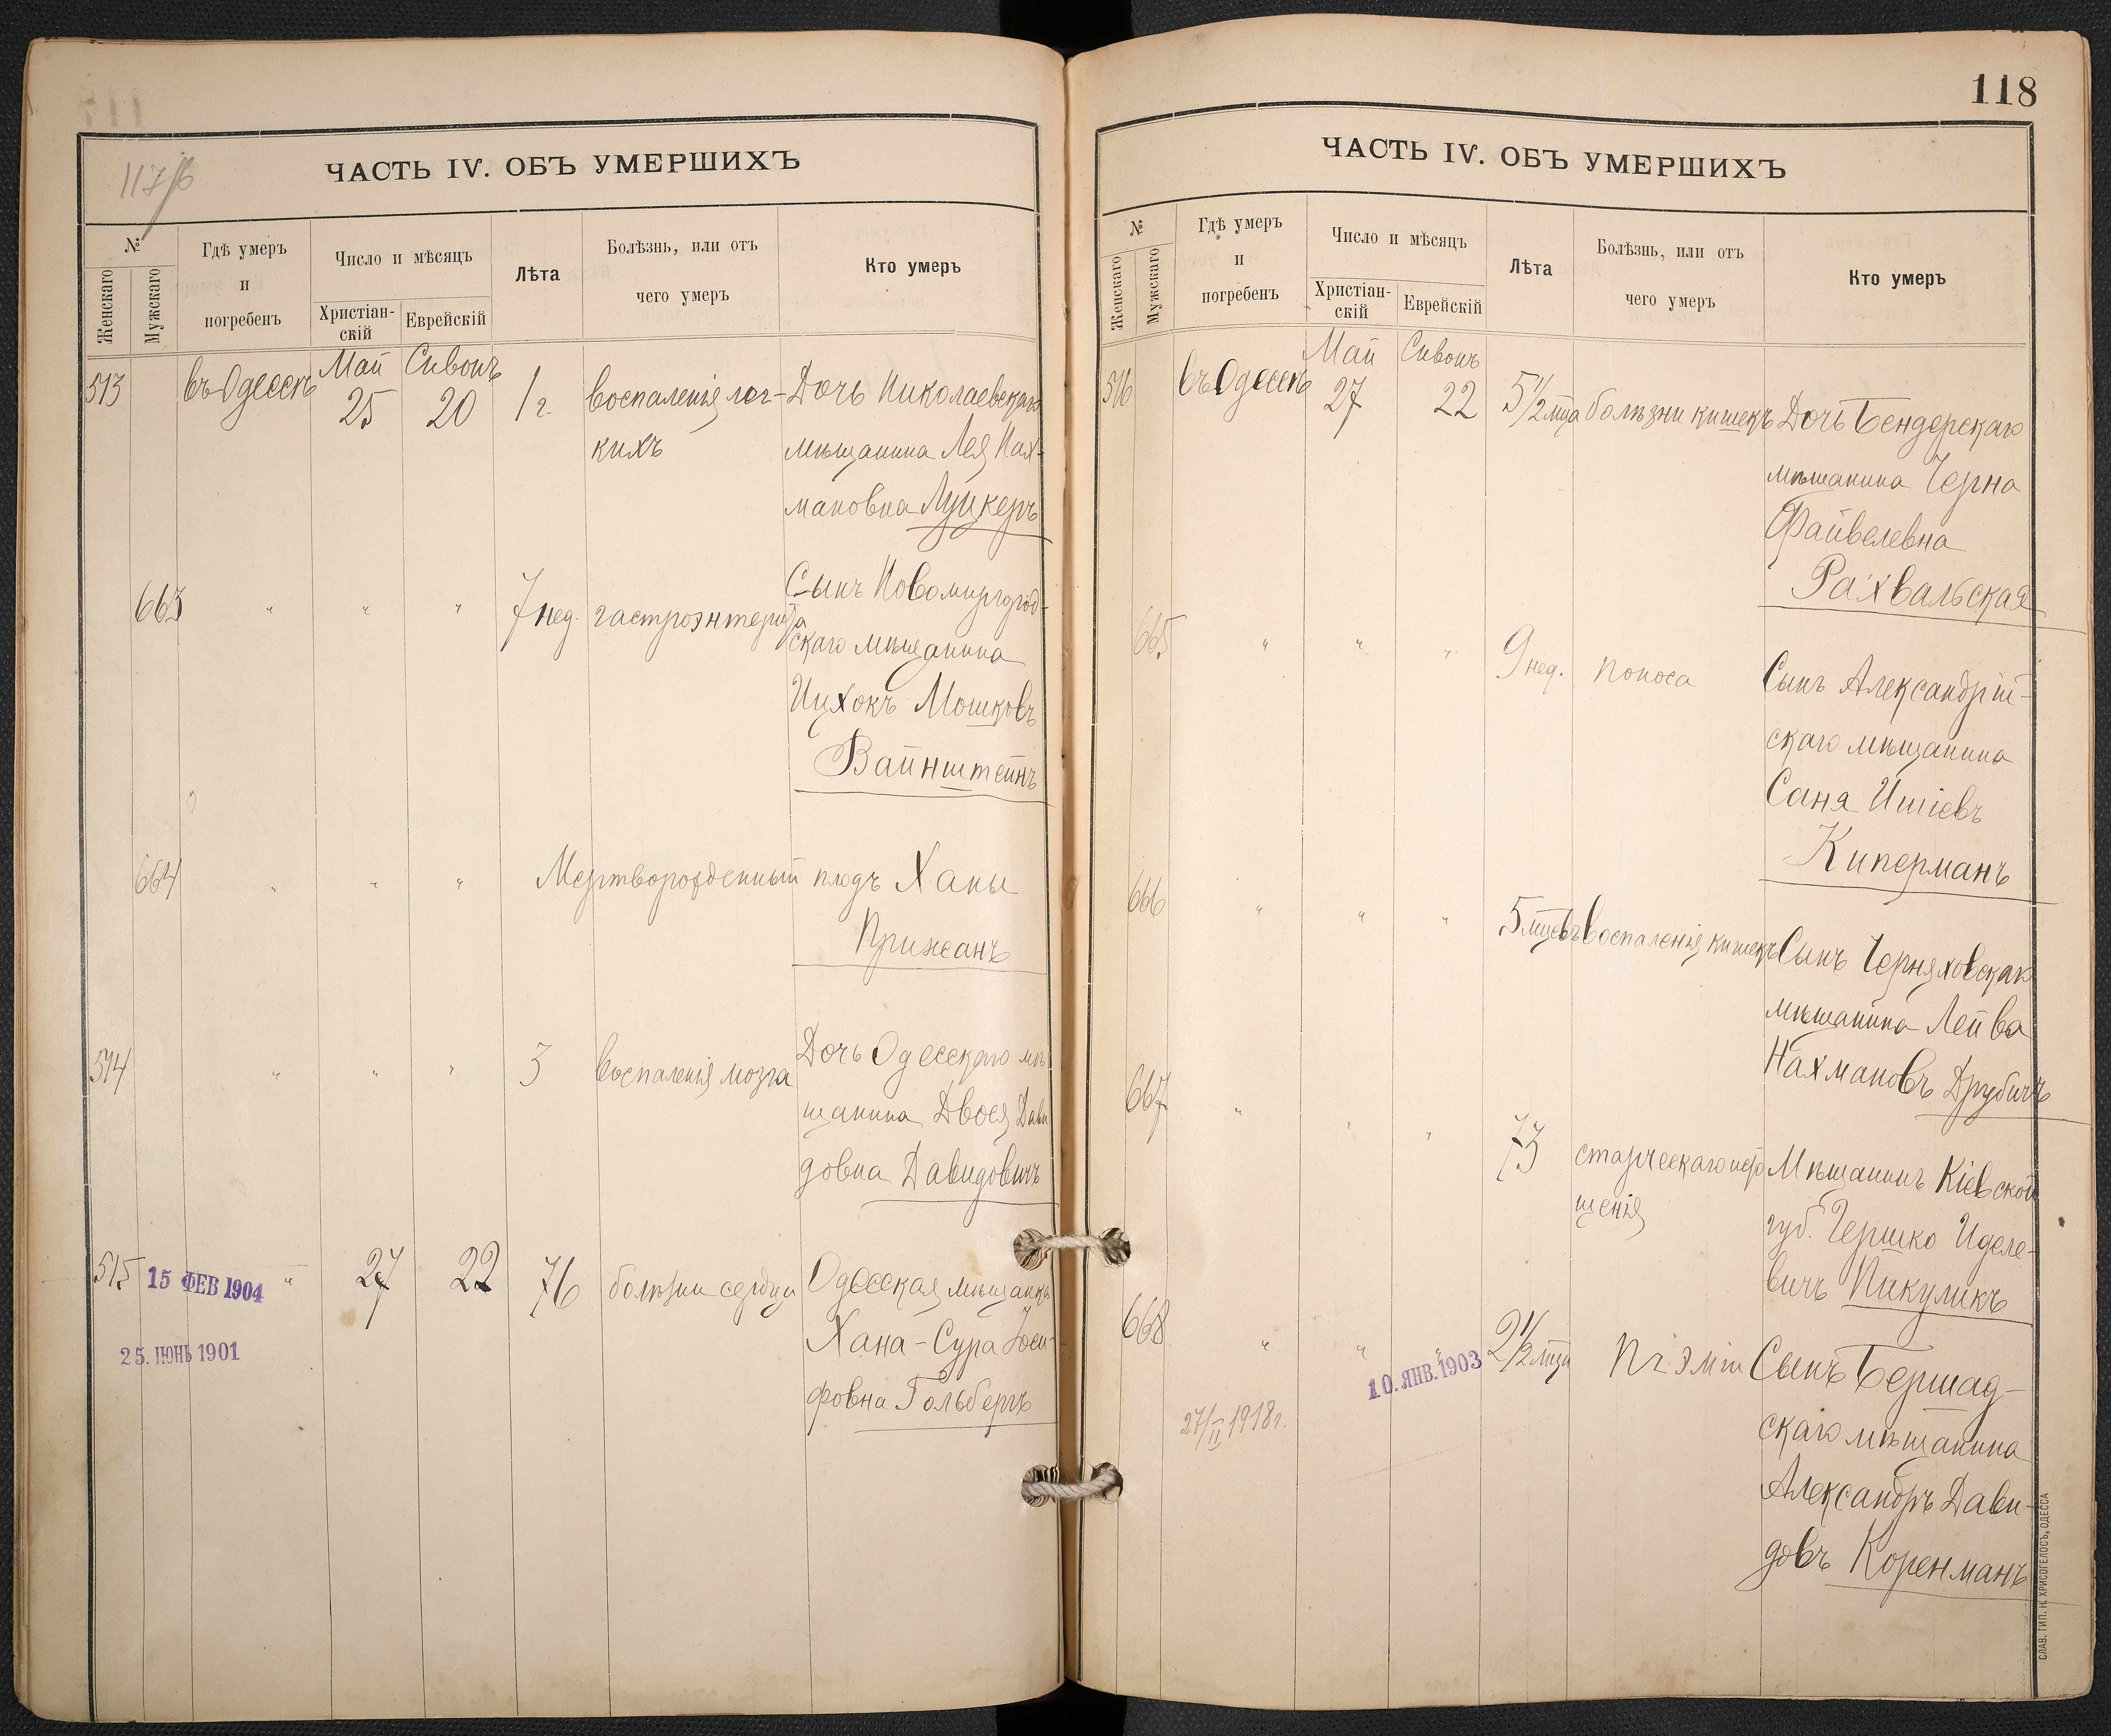 117/б
ЧАСТЬ IV. ОБЪ УМЕРШИХЪ
№
Женскаго
Мужскаго
Гдѣ умеръ
и
погребенъ
Число и мѣсяцъ
Христіан-
скій
Еврейскій
Лѣта
Болѣзнь, или отъ
чего умеръ
Кто умеръ
Май Сивонъ
513 въ Одессѣ 25 20 1 г. воспаленія лег- Дочь Николаевскаго
кихъ мѣщанина Лея Нах-
мановна Луцкеръ
663 " " " 7 нед. гастроэнтерита Сынъ Новомиргород-
скаго мѣщанина
Ицхокъ Мошковъ
Вайнштейнъ
664 " " " Мертворожденный плодъ Ханы
Прижанъ
514 " " " 3 воспаленія мозга Дочь Одесскаго мѣ-
щанина Двося Дави
довна Давидовичъ
515 15 ФЕВ 1904 " 27 22 76 болѣзни сердца Одесская мѣщанка
25. ІЮНЬ 1901 Хана-Сура Іоси-
фовна Гольбергъ
118
ЧАСТЬ IV. ОБЪ УМЕРШИХЪ
№
Женскаго
Мужскаго
Гдѣ умеръ
и
погребенъ
Число и мѣсяцъ
Христіан-
скій
Еврейскій
Лѣта
Болѣзнь, или отъ
чего умеръ
Кто умеръ
Май Сивонъ
516 въ Одессѣ 27 22 5 1/2 мца болѣзни кишекъ Дочь Бендерскаго
мѣщанина Черна
Файвелевна
Рахвальская
665 " " " 9 нед. поноса Сынъ Александрій-
скаго мѣщанина
Саня Ишіевъ
Киперманъ
666 " " " 5 мцевъ воспаленія кишекъ Сынъ Черняховскаго
мѣщанина Лейва
Нахмановъ Друбичъ
667 " " " 73 старческаго исто Мѣщанинъ Кіевской
щенія губ. Гершко Иделе-
вичъ Пикуликъ
668 " " " 2 1/2 мца піэміи Сынъ Бершад-
10. ЯНВ. 1903
27/II 1918 г. скаго мѣщанина
Александръ Дави-
довъ Коренманъ
СЛАВ. ТИП. Н. ХРИСОГЕЛОСЪ, ОДЕССА